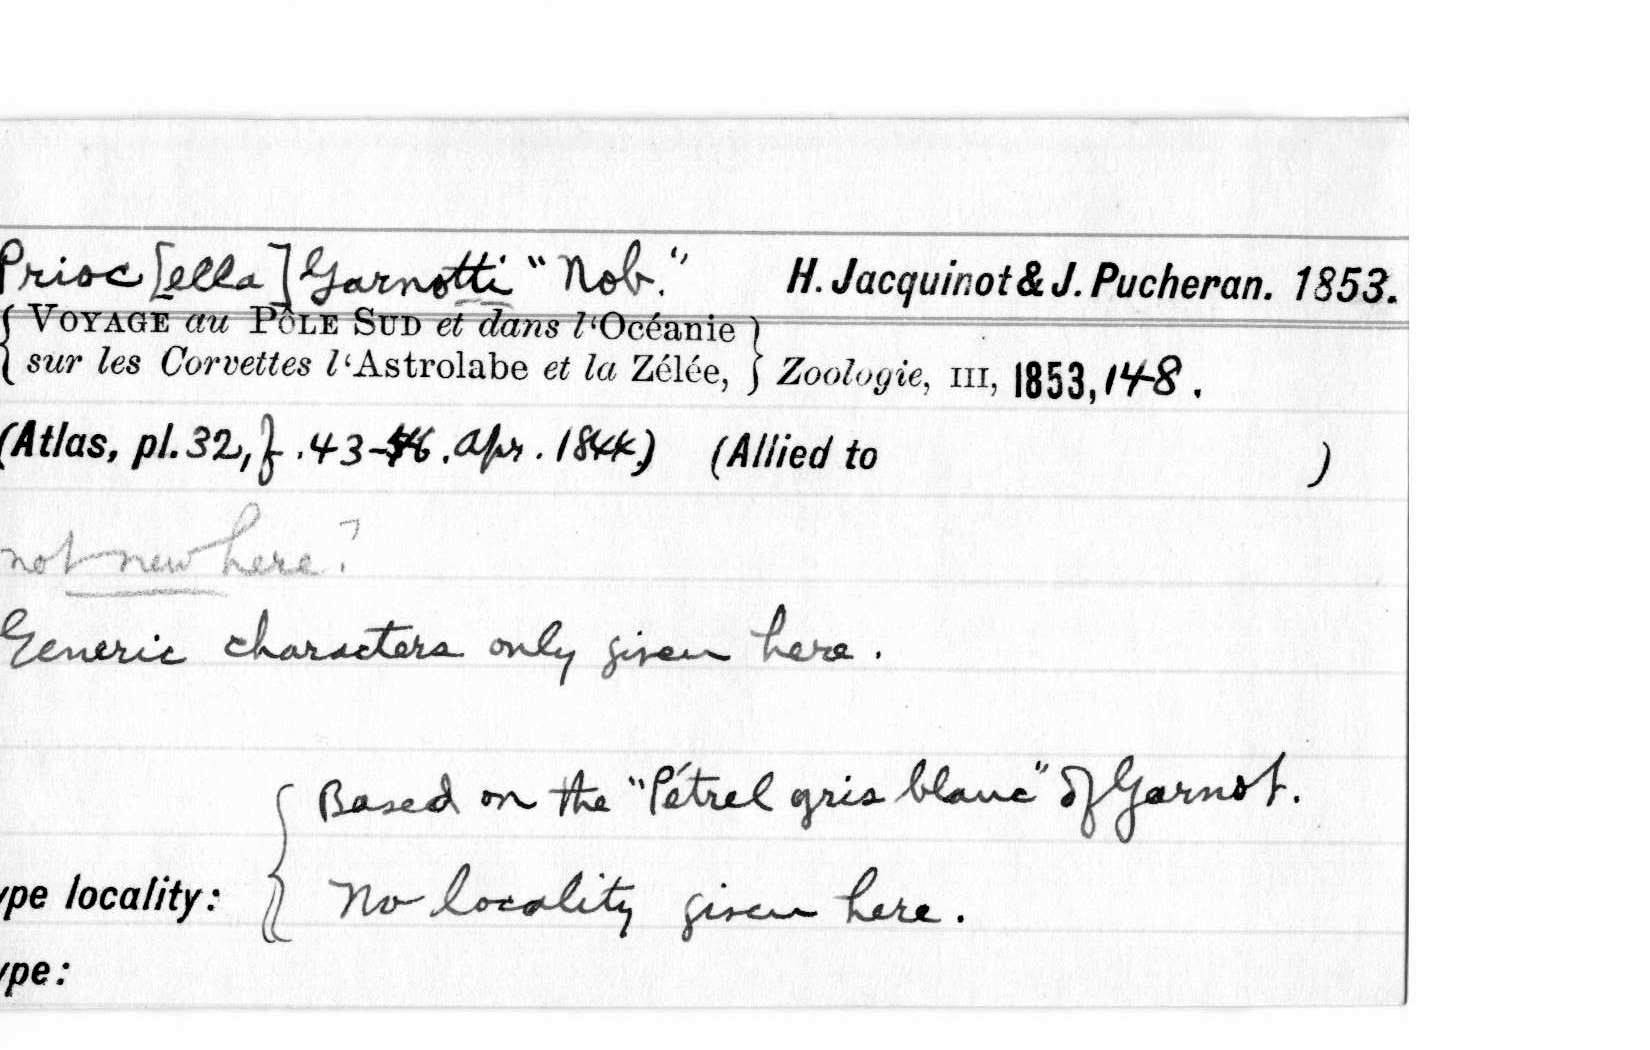 Prioc[ella] Garnotti "Nob." H. Jacquinot & J. Pucheran. 1853.
{ VOYAGE au PÔLE SUD et dans l'Océanie }
{ sur les Corvettes l'Astrolabe et la Zélée, } Zoologie, III, 1853, 148.
(Atlas, pl. 32, f. 43-46. Apr. 1844.) (Allied to )
not new here?
Generic characters only given here.
{ Based on the "Pétrel gris blanc" of Garnot.
ype locality: { No locality given here.
ype: